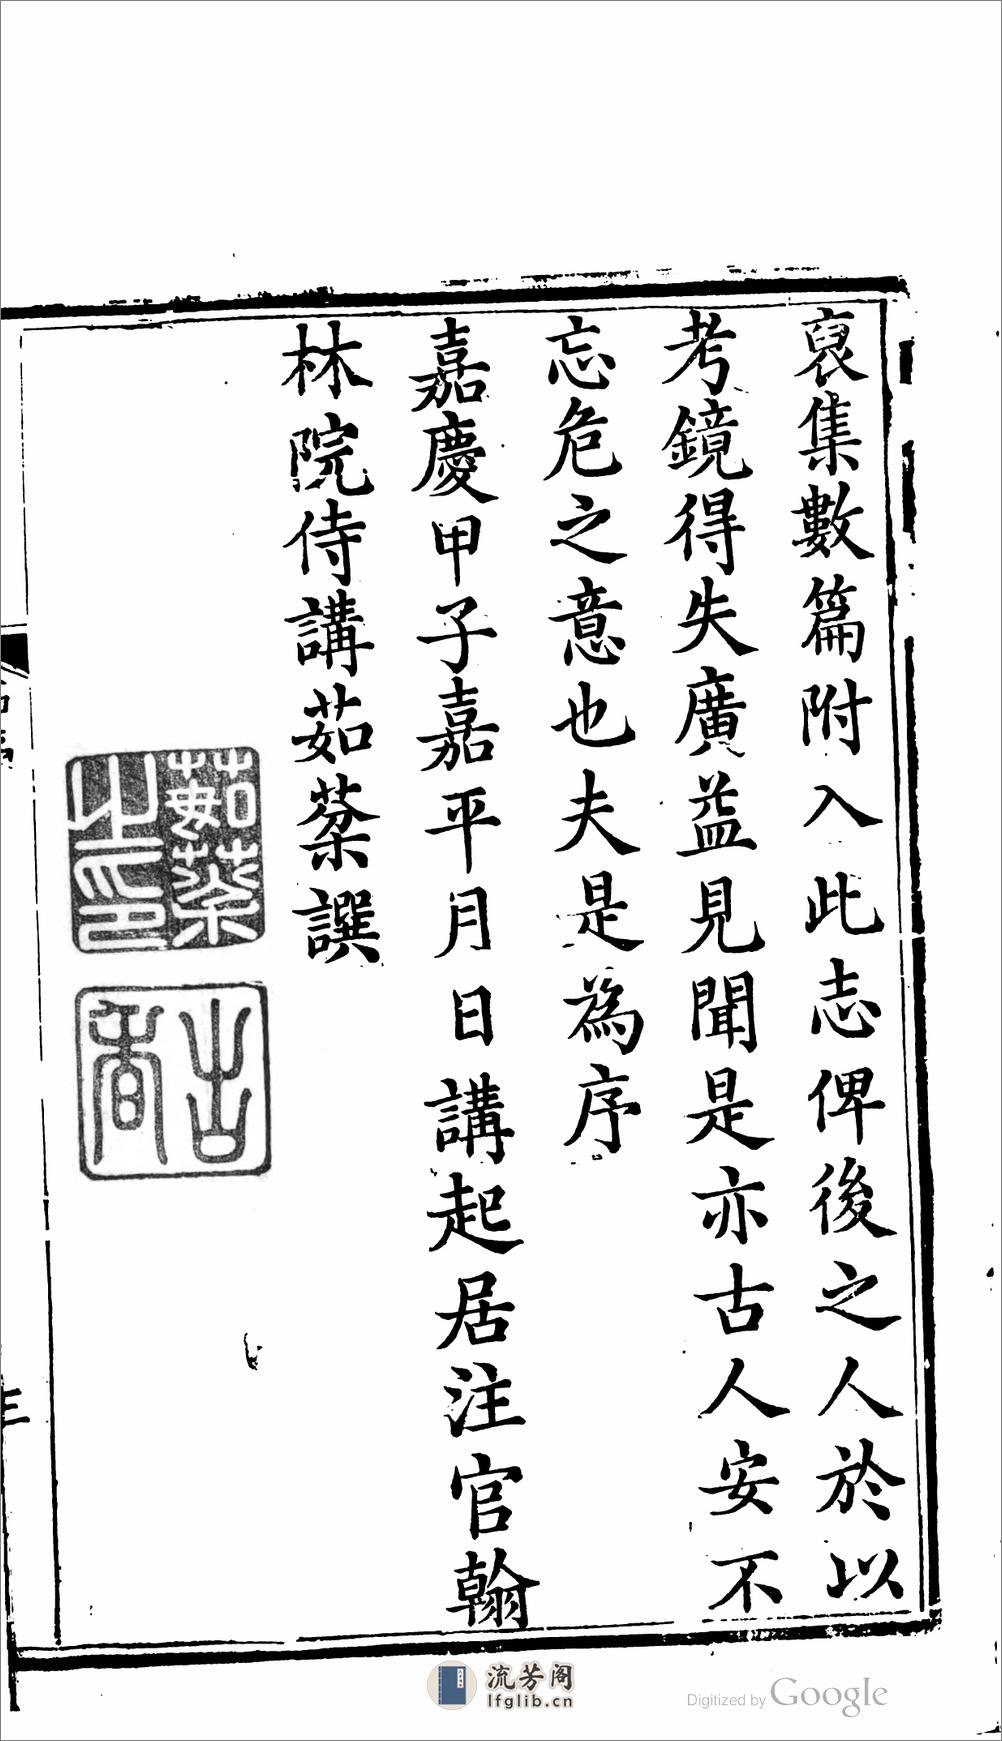 裒集數篇附入此志俾後之人於以
考鏡得失廣益見聞是亦古人安不
忘危之意也夫是為序
嘉慶甲子嘉平月日講起居注官翰
林院侍講茹棻撰
茹棻之印
古香
三
流芳阁
lfglib.cn
Digitized by Google